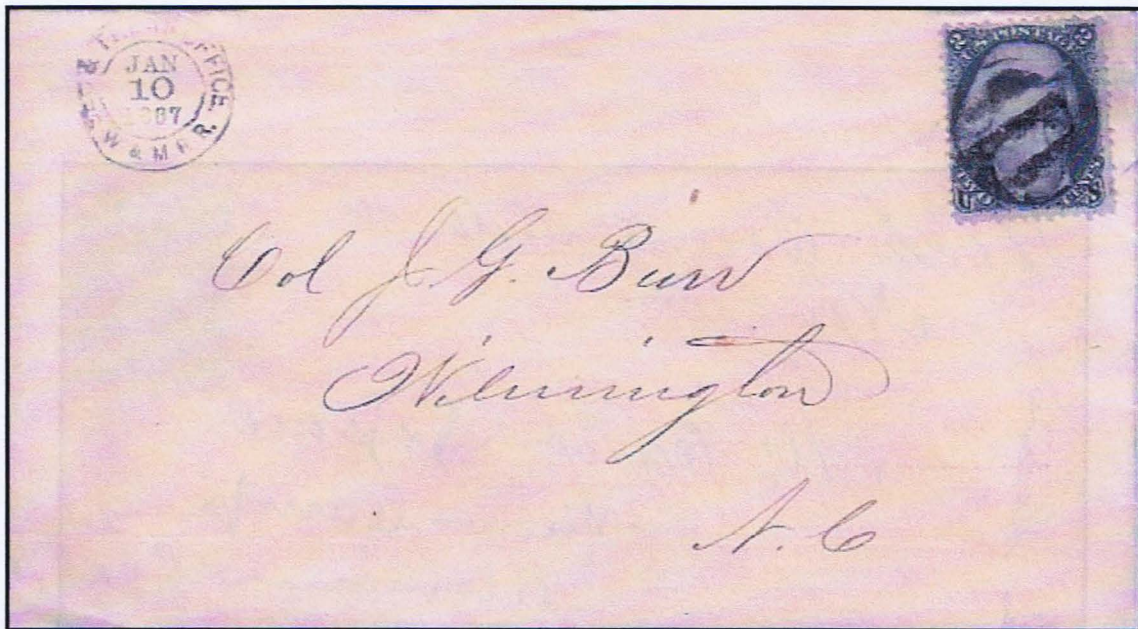 OFFICE
JAN
10
1867
W & M R. R.
2 U.S. POSTAGE 2
TWO CENTS
U S
Col J. G. Burr
Wilmington
N. C